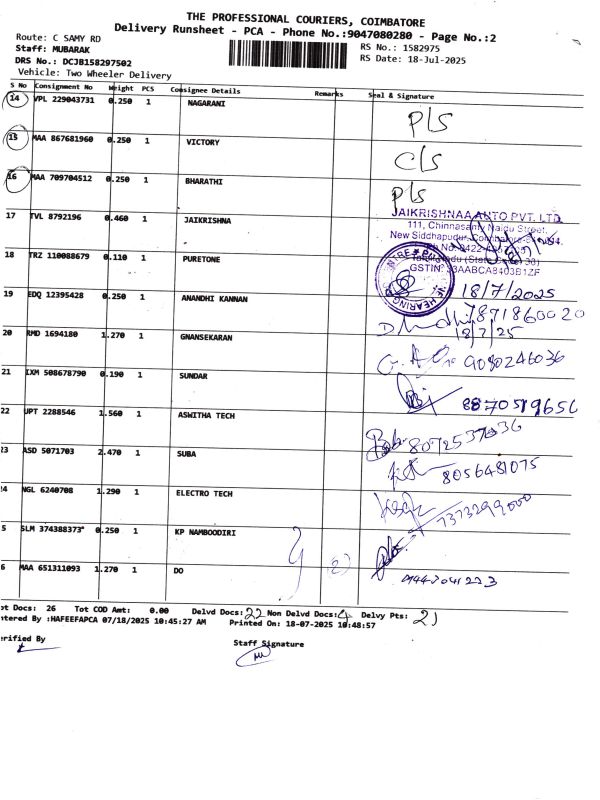 THE PROFESSIONAL COURIERS, COIMBATORE
Delivery Runsheet - PCA - Phone No.:9047080280 - Page No.:2
Route: C SAMY RD
RS No.: 1582975
Staff: MUBARAK
RS Date: 18-Jul-2025
DRS No.: DCJB158297502
Vehicle: Two Wheeler Delivery
S No Consignment No Weight PCS Consignee Details Remarks Seal & Signature
14 VPL 229043731 0.250 1 NAGARANI P/S
15 MAA 867681960 0.250 1 VICTORY C/S
16 MAA 709704512 0.250 1 BHARATHI P/S
JAIKRISHNAA AUTO PVT. LTD.
17 TVL 8792196 0.460 1 JAIKRISHNA
111, Chinnasamy Naidu Street,
New Siddhapudur, Coimbatore
18 TRZ 110088679 0.110 1 PURETONE
GSTIN: 33AABCA8403B1ZF
HEARING
18/7/2025
19 EDQ 12395428 0.250 1 ANANDHI KANNAN
7871860020
18/7/25
20 RMD 1694180 1.270 1 GNANSEKARAN
9080246036
21 IXM 508678790 0.190 1 SUNDAR
22 UPT 2288546 1.560 1 ASWITHA TECH
23 ASD 5071703 2.470 1 SUBA
8056481075
24 NGL 6240708 1.290 1 ELECTRO TECH
7373299000
5 SLM 374388373* 0.250 1 KP NAMBOODIRI
6 MAA 651311093 1.270 1 DO
ot Docs: 26 Tot COD Amt: 0.00 Delvd Docs: 22 Non Delvd Docs: 4 Delvy Pts: 21
ntered By :HAFEEFAPCA 07/18/2025 10:45:27 AM Printed On: 18-07-2025 10:48:57
erified By Staff Signature